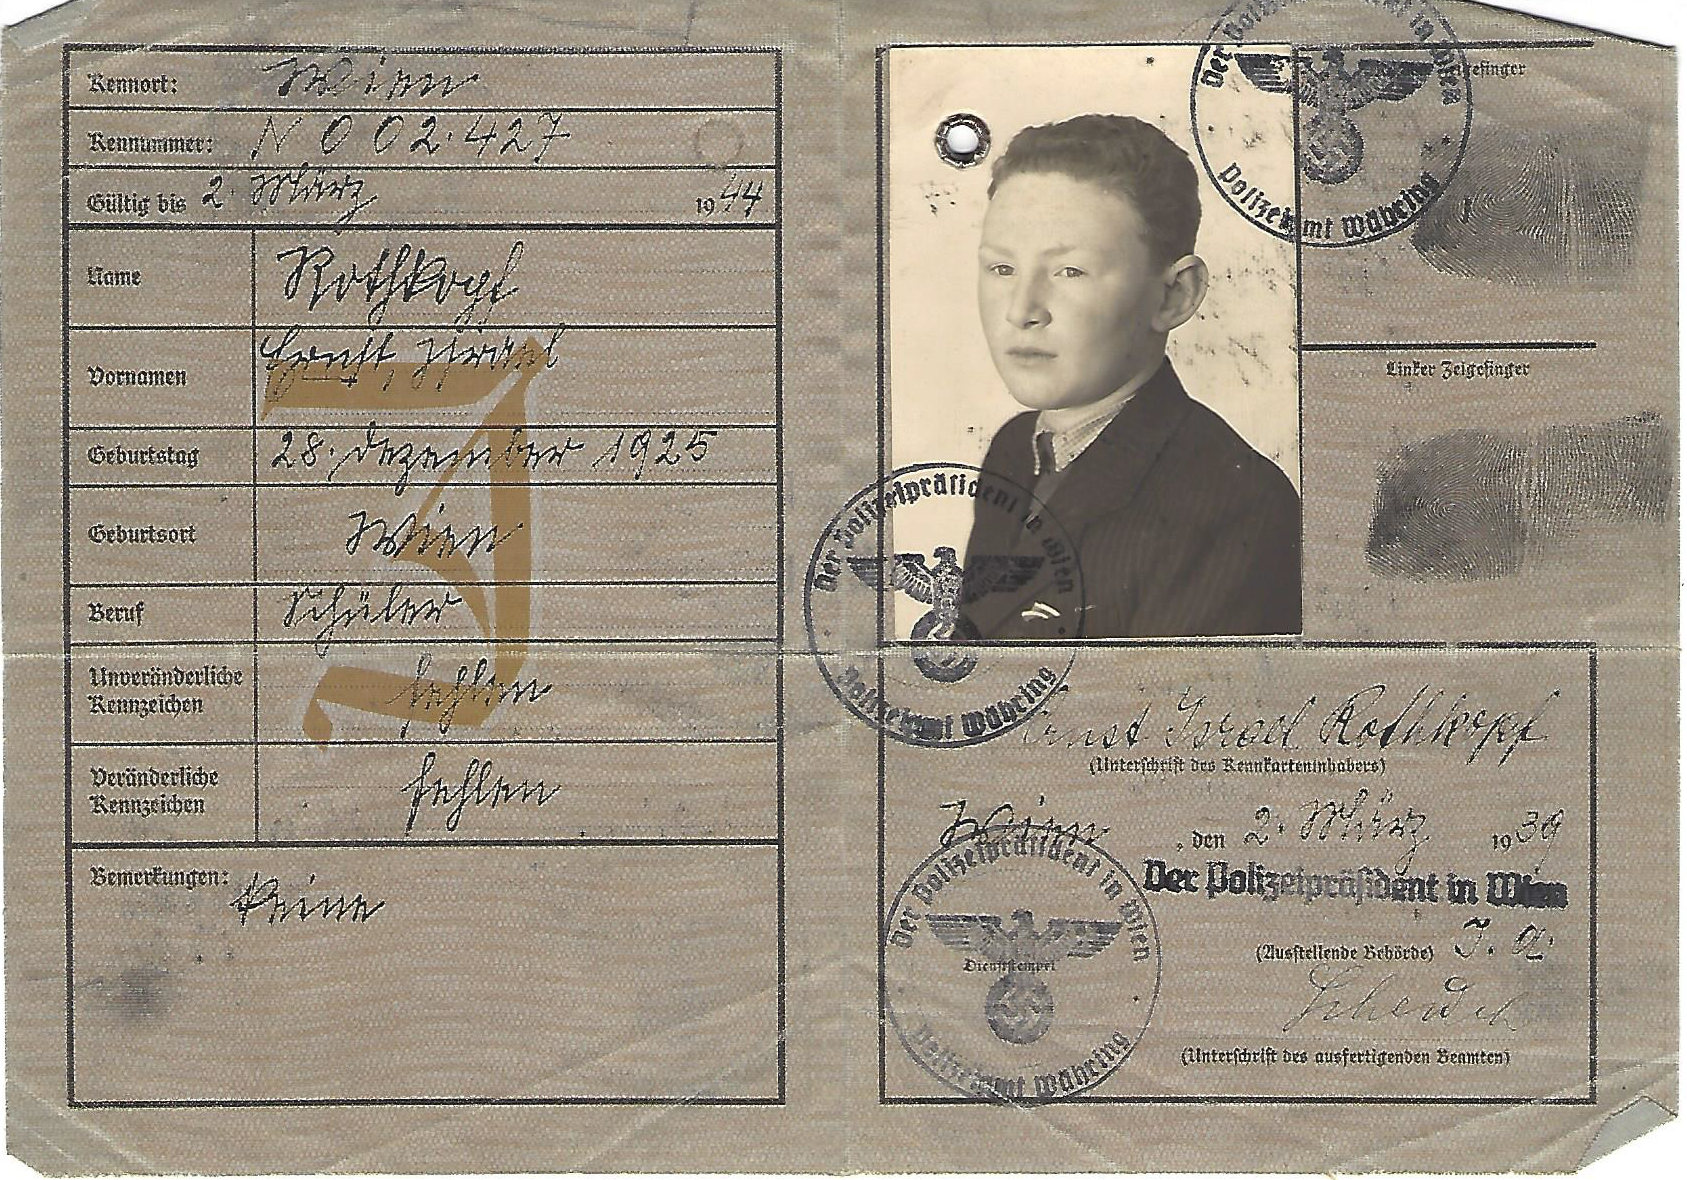 Kennort: Wien
Kennummer: N 002.427
Gültig bis 2. März 1944
Name Rothkopf
Vornamen Ernst, Israel
Geburtstag 28. Dezember 1925
Geburtsort Wien
Beruf Schüler
Unveränderliche
Kennzeichen fehlen
Veränderliche
Kennzeichen fehlen
Bemerkungen: Keine
J
Der Polizeipräsident in Wien
Polizeiamt Währing
Zeigefinger
Linker Zeigefinger
Der Polizeipräsident in Wien
Polizeiamt Währing
Ernst Israel Rothkopf
(Unterschrift des Kennkarteninhabers)
Wien, den 2. März 1939
Der Polizeipräsident in Wien
(Ausstellende Behörde) I. A.
(Unterschrift des ausfertigenden Beamten)
Der Polizeipräsident in Wien
Dienststempel
Polizeiamt Währing